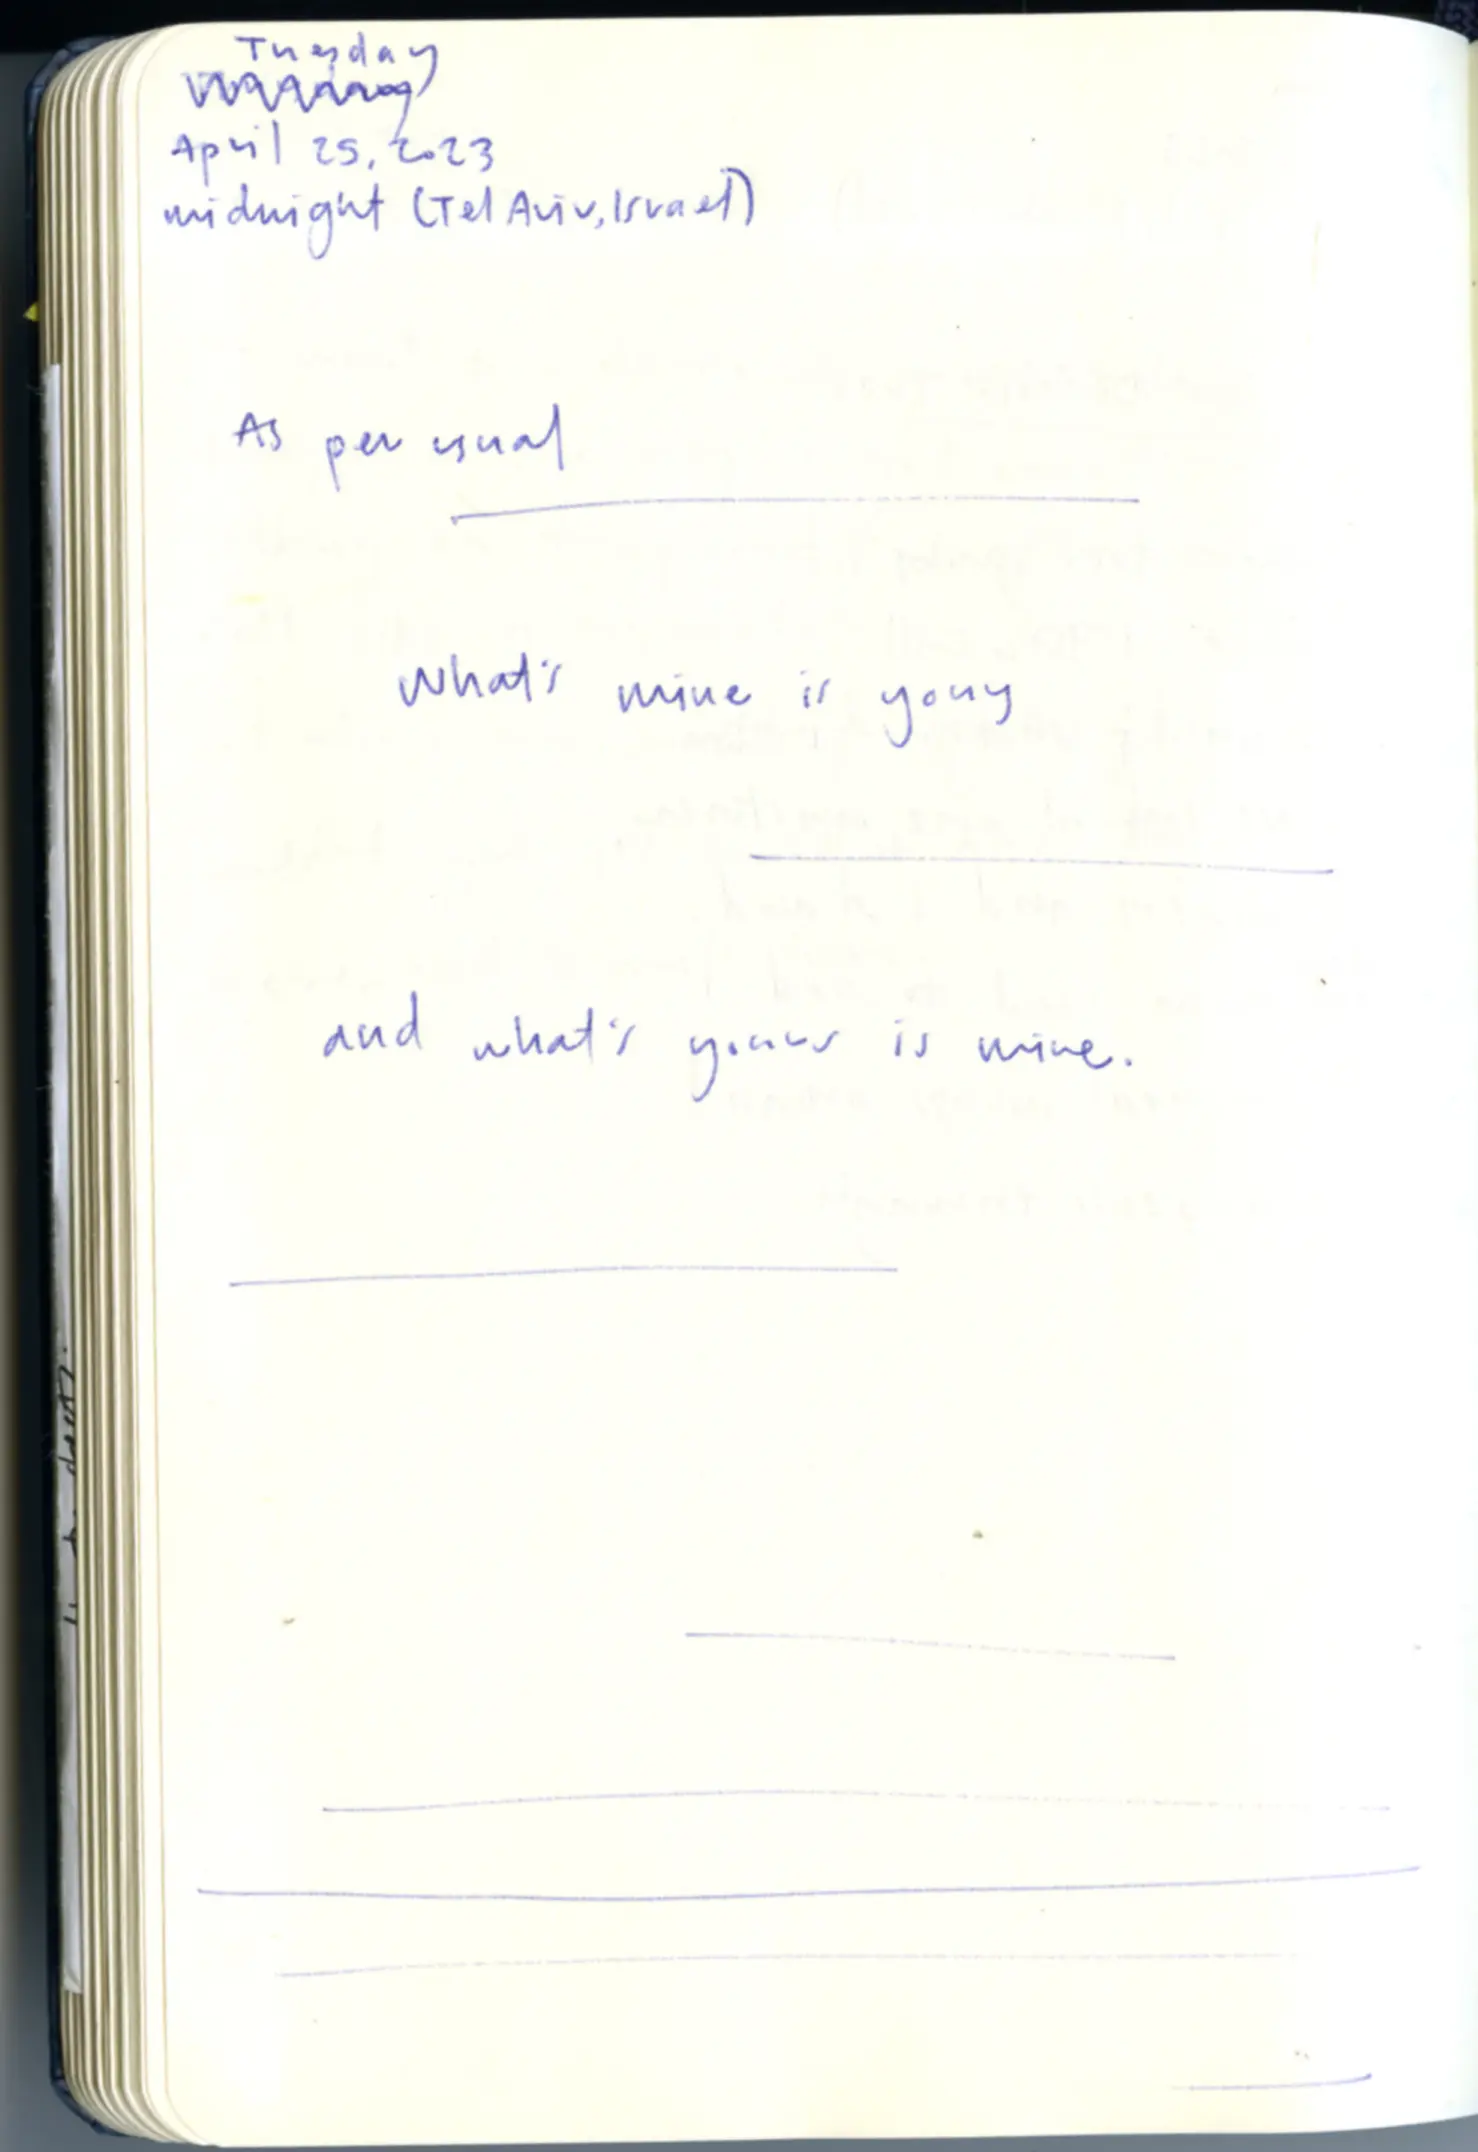 Tuesday
April 25, 2023
midnight (Tel Aviv, Israel)
As per usual
What's mine is yours
and what's yours is mine.